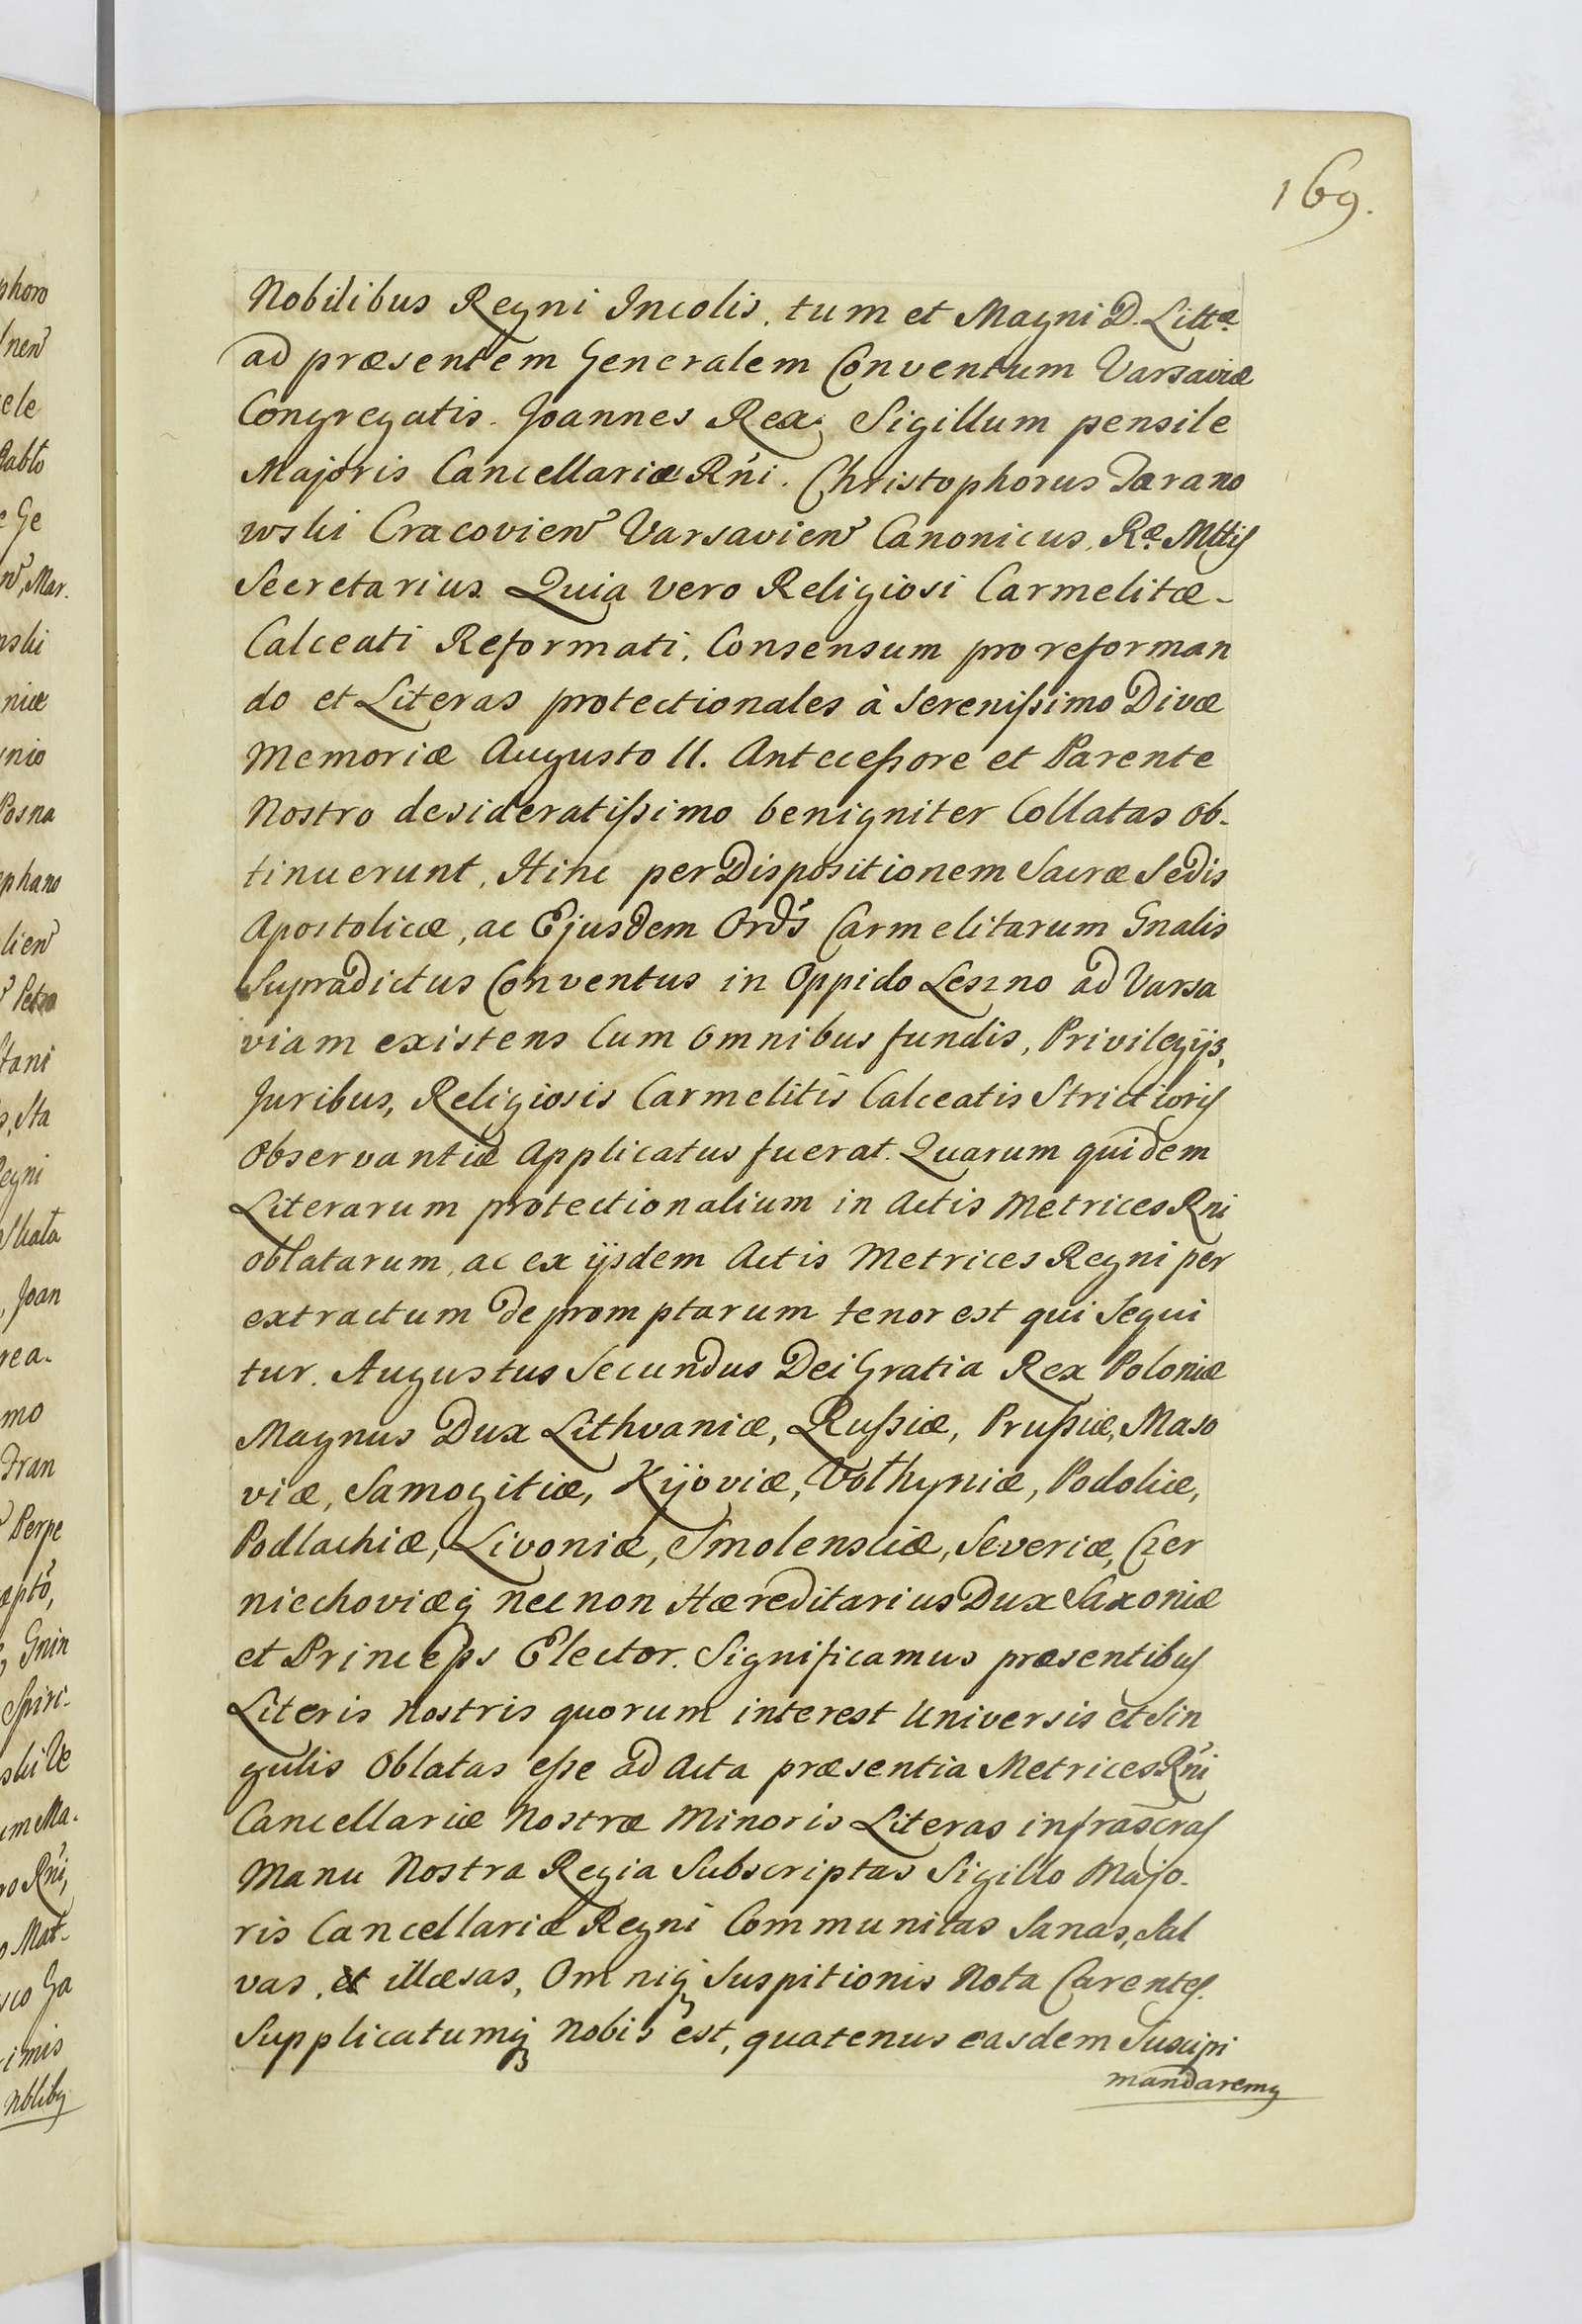 169.
phoro
nen
ele
e Ge
n, Mar.
nski
niæ
nio
Posna
phano
lien
Petro
tani
, Sta
egni
, Joan
rea-
mo
Fran
Perpe
æpto,
Gnin
Spiri-
ski Ve
um Ma-
ro Rńi,
o Mat-
sco Ga
imis
Nblibꝫ
Nobilibus Regni Incolis, tum et Magni D. Littæ
ad præsentem Generalem Conventum Varsaviæ
Congregatis. Joannes Rex. Sigillum pensile
Majoris Cancellariæ Rńi. Christophorus Tarano
wski Cracovien Varsavien Canonicus, Ræ Mttis
Secretarius. Quia vero Religiosi Carmelitæ-
Calceati Reformati, Consensum pro reforman
do et Literas protectionales à Serenißimo Divæ
Memoriæ Augusto II. Anteceßore et Parente
Nostro desideratißimo benigniter Collatas ob-
tinuerunt, Hinc per Dispositionem Sacræ Sedis
Apostolicæ, ac Ejusdem Ordś Carmelitarum Gnalis
Supradictus Conventus in Oppido Leszno ad Varsa
viam existens Cum omnibus fundis, Privilegijs,
Juribus, Religiosis Carmelitis Calceatis Strictioris
Observantiæ Applicatus fuerat. Quarum quidem
Literarum protectionalium in Actis Metrices Rni
oblatarum, ac ex ijsdem Actis Metrices Regni per
extractum depromptarum tenor est qui Sequi
tur. Augustus Secundus Dei Gratia Rex Poloniæ
Magnus Dux Lithvaniæ, Rußiæ, Prußiæ, Maso
viæ, Samogitiæ, Kijoviæ, Volhyniæ, Podoliæ,
Podlachiæ, Livoniæ, Smolensciæ, Severiæ, Czer
niechoviæq nec non Hæreditarius Dux Saxoniæ
et Princeps Elector. Significamus præsentibus
Literis Nostris quorum interest Universis et Sin
gulis Oblatas eße ad Acta præsentia Metrices Rńi
Cancellariæ Nostræ Minoris Literas infrascras
Manu Nostra Regia Subscriptas Sigillo Majo-
ris Cancellariæ Regni Communitas Sanas, Sal
vas, et illæsas, Omniq Suspitionis Nota Carentes.
Supplicatumqꝫ Nobis est, quatenus easdem Suscipi
mandaremꝫ